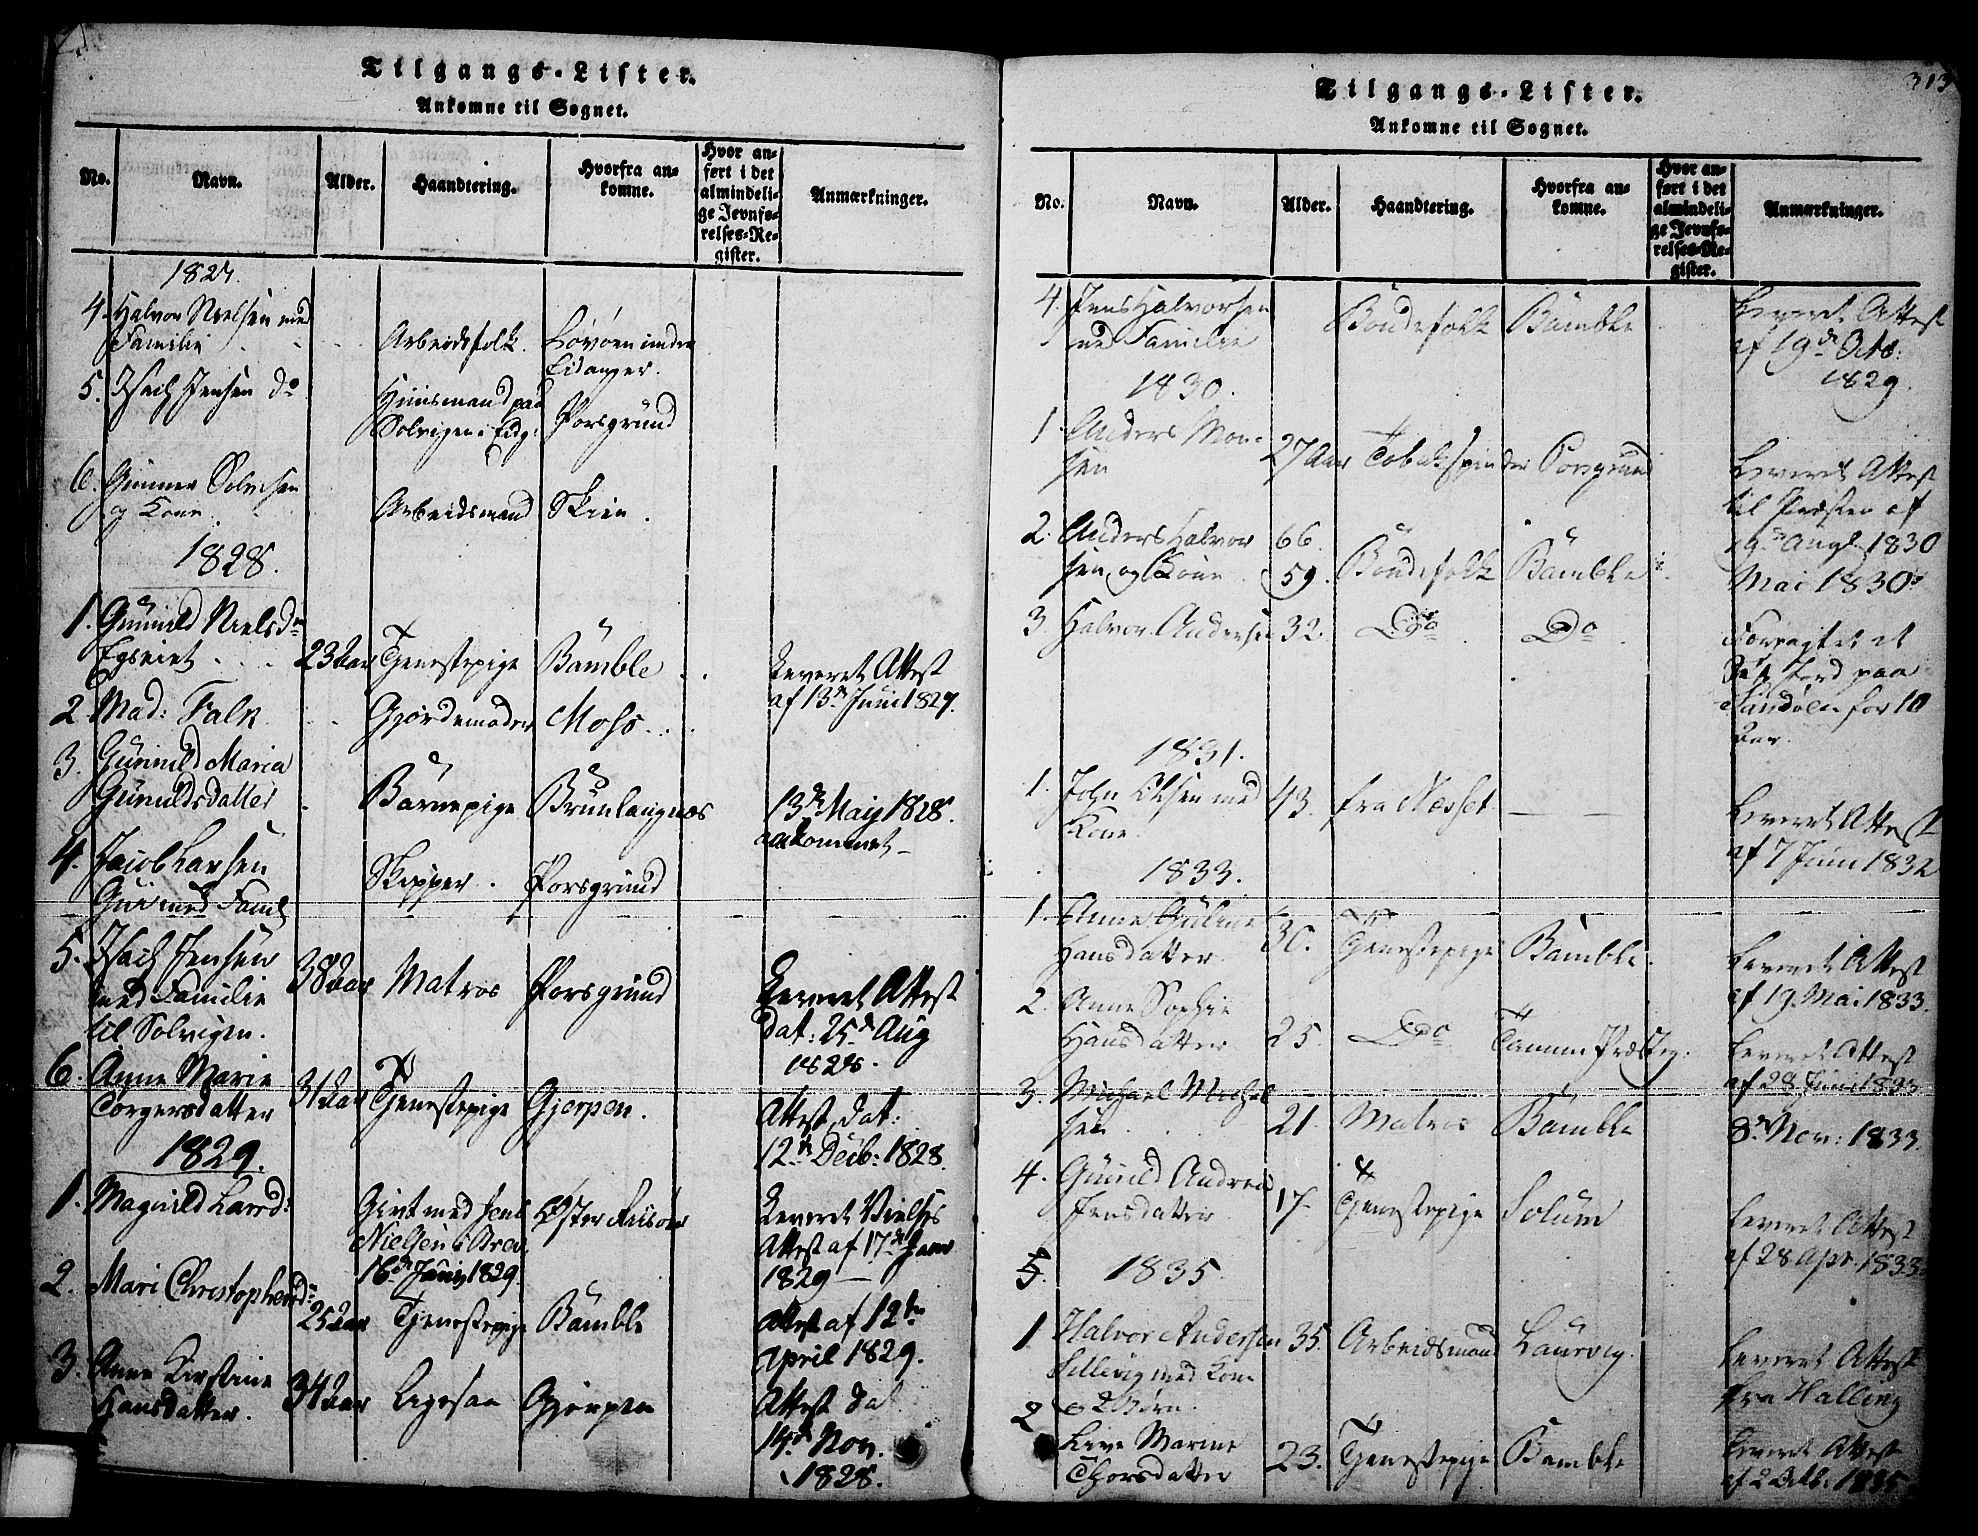 Tilgangs-Lister.
Ankomne til Sognet.
No. Navn. Alder. Haandtering. Hvorfra ankomne. Hvor anført i det almindelige Jevnførelses-Register. Anmærkninger.
1827.
4. Halvor Nielsen med
Familie Arbeidsfolk. Løvøen indre
Eidanger.
5. Isach Jensen do Huusmand paa
Solvigen i Eidg: Porsgrund
6. Gunner Solvesen
og Kone Arbeidsmand Skien.
1828.
1. Gunild Nielsdr
23 Aar Tjenestepige Bamble Leveret Attest
af 13de Juni 1827.
2. Mad: Falk Gjordemoder Moss
3. Gunnild Maria
Gunuldsdatter Barnepige Brunlangnæs 13de May 1828.
ankommet
4. Jacob Larsen
med Faml Skipper. Porsgrund
5. Isach Jensen
med Familie
til Solvigen. 38 Aar Matros Porsgrund Leveret Attest
dat: 25de Aug
1828.
6. Anne Marie
Torgersdatter 31 Aar Tjenestepige Gjerpen. Attest, dat:
12te Decb: 1828.
1829.
1. Magnild Larsd: Givt med Jens
Nielsen i Brev.
16de Juny 1829. Øster Riisøer Leveret Vielses
Attest af 17de Janr
1829
2. Mari Christophersdr
25 Aar Tjenestepige Bamble Attest af 12te
April 1829.
3. Anne Kirstine
Hansdatter. 34 Aar Ligesaa Gjerpen Attest da
14de Nov.
1828.
313
Tilgangs-Lister.
Ankomne til Sognet.
No. Navn. Alder. Haandtering. Hvorfra ankomne. Hvor anført i det almindelige Jevnførelses-Register. Anmærkninger.
4. Jens Halvorsen
med Familie Bondefolk Bamble Leveret Attest
af 19de Octo:
1829.
1830.
1. Anders Monsen
27 Aar Tobakspinder Porsgrund Leveret Attest
til Præsten af
Augl 1830
2. Anders Halvorsen
og Kone 66.
59. Bondefolk Bamble Mai 1830
3. Halvor Andersen 32. Do Do Forpagtet et
Jord paa
Sandøen for 10
Aar.
1831.
1. John Olsen med
Kone 43. fra Næsset Leveret Attest
af 7 Juni 1832
1833.
1. Anne Guline
Hansdatter 30. Tjenestepige Bamble. Leveret Attest
af 19. Mai 1833.
2. Anne Sophie
Hansdatter 25. Do Præsteg: Leveret Attest
af 28 Juni 1833
3. Michael Michelsen
21. Matros Bamble 8de Nov: 1833.
4. Gunild Andrea
Jensdatter 17 Tjenestepige Solum Leveret Attest
af 28 Apr. 1833.
5. 1835.
1 Halvor Andersen
med Kone
2 Børn. 35. Arbeidsmand Laurvig. Leveret Attest
fra Halling
2 Live Marine
Thorsdatter 23. Tjenestepige Bamble Leveret Attest
af 2 Octb: 1835